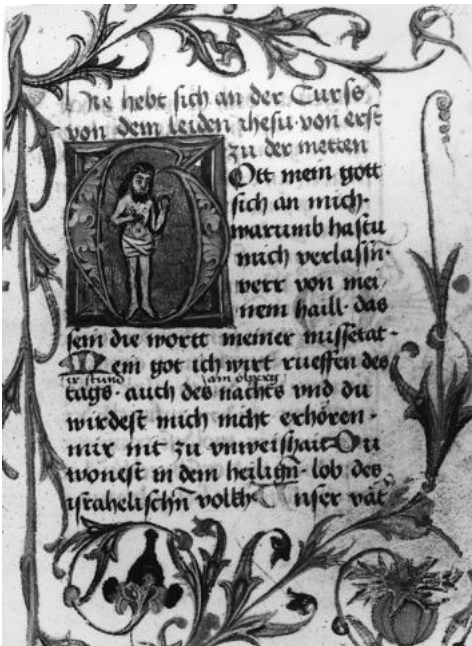 Hie hebt sich an der Curss
von dem leiden ihesu · von erst
zu der metten
Gott mein gott
sich an mich ·
warumb hastu
mich verlassn̄ ·
verr von mei
nem haill · das
sein die wortt meiner missetat ·
Mein got ich wirt rueffen des
ir stund am ölperg
tags · auch des nachts vnd du
wirdest mich nicht erhören ·
mir nit zu vnweishait Du
wonest in dem heilign̄ · lob des
israhelischn̄ volkh Vnser vat